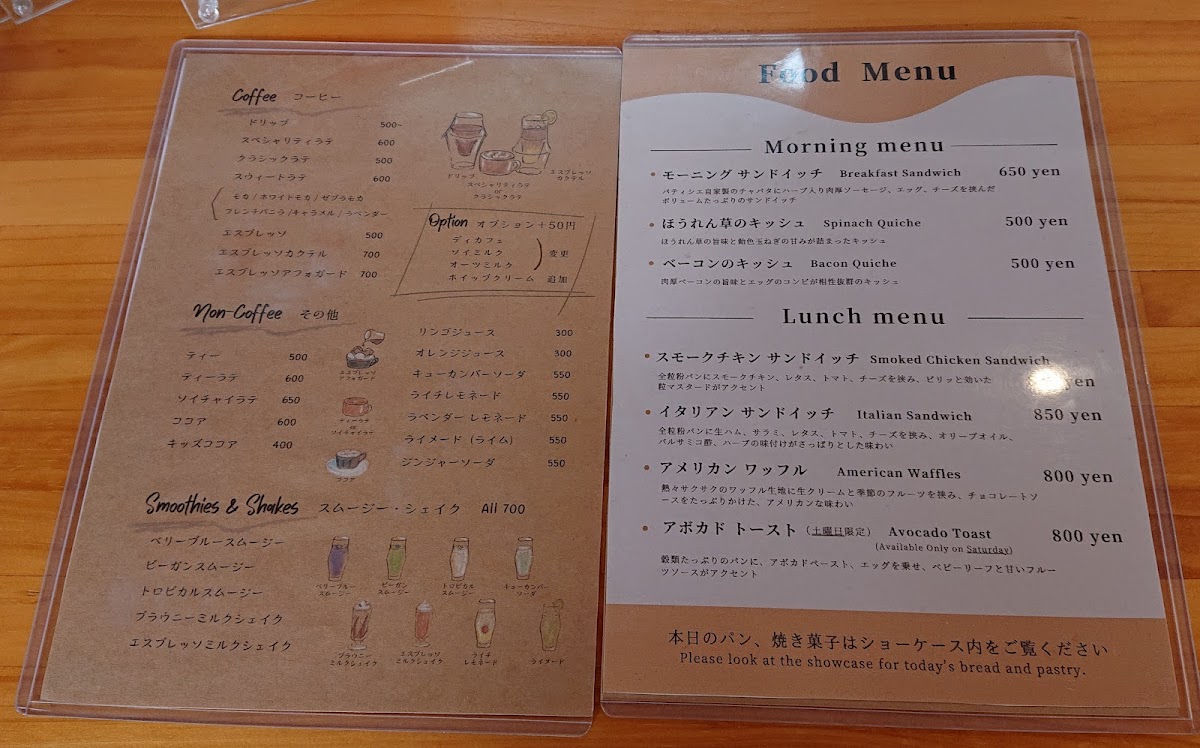 Coffee コーヒー
ドリップ 500~
スペシャリティラテ 600
クラシックラテ 500
スウィートラテ 600
モカ/ホワイトモカ/ゼブラモカ
フレンチバニラ/キャラメル/ラベンダー
エスプレッソ 500
エスプレッソカクテル 700
エスプレッソアフォガード 700
ドリップ
スペシャリティラテ
or
クラシックラテ
エスプレッソ
カクテル
Option オプション+50円
ディカフェ
ソイミルク 変更
オーツミルク
ホイップクリーム 追加
Non-Coffee その他
ティー 500
ティーラテ 600
ソイチャイラテ 650
ココア 600
キッズココア 400
エスプレッソ
アフォガード
ティーラテ
or
ソイチャイラテ
ココア
リンゴジュース 300
オレンジジュース 300
キューカンバーソーダ 550
ライチレモネード 550
ラベンダー レモネード 550
ライメード (ライム) 550
ジンジャーソーダ 550
Smoothies & Shakes スムージー・シェイク All 700
ベリーブルースムージー
ビーガンスムージー
トロピカルスムージー
ブラウニーミルクシェイク
エスプレッソミルクシェイク
ベリーブルー
スムージー
ビーガン
スムージー
トロピカル
スムージー
キューカンバー
ソーダ
ブラウニー
ミルクシェイク
エスプレッソ
ミルクシェイク
ライチ
レモネード
ライメード
Food Menu
Morning menu
モーニング サンドイッチ Breakfast Sandwich 650 yen
パティシエ自家製のチャバタにハーブ入り肉厚ソーセージ、エッグ、チーズを挟んだ
ボリュームたっぷりのサンドイッチ
ほうれん草のキッシュ Spinach Quiche 500 yen
ほうれん草の旨味と飴色玉ねぎの甘みが詰まったキッシュ
ベーコンのキッシュ Bacon Quiche 500 yen
肉厚ベーコンの旨味とエッグのコンビが相性抜群のキッシュ
Lunch menu
スモークチキン サンドイッチ Smoked Chicken Sandwich
yen
全粒粉パンにスモークチキン、レタス、トマト、チーズを挟み、ピリッと効いた
粒マスタードがアクセント
イタリアン サンドイッチ Italian Sandwich 850 yen
全粒粉パンに生ハム、サラミ、レタス、トマト、チーズを挟み、オリーブオイル、
バルサミコ酢、ハーブの味付けがさっぱりとした味わい
アメリカン ワッフル American Waffles 800 yen
熱々サクサクのワッフル生地に生クリームと季節のフルーツを挟み、チョコレートソ
ースをたっぷりかけた、アメリカンな味わい
アボカド トースト (土曜日限定) Avocado Toast 800 yen
(Available Only on Saturday)
穀類たっぷりのパンに、アボカドペースト、エッグを乗せ、ベビーリーフと甘いフルー
ツソースがアクセント
本日のパン、焼き菓子はショーケース内をご覧ください
Please look at the showcase for today's bread and pastry.